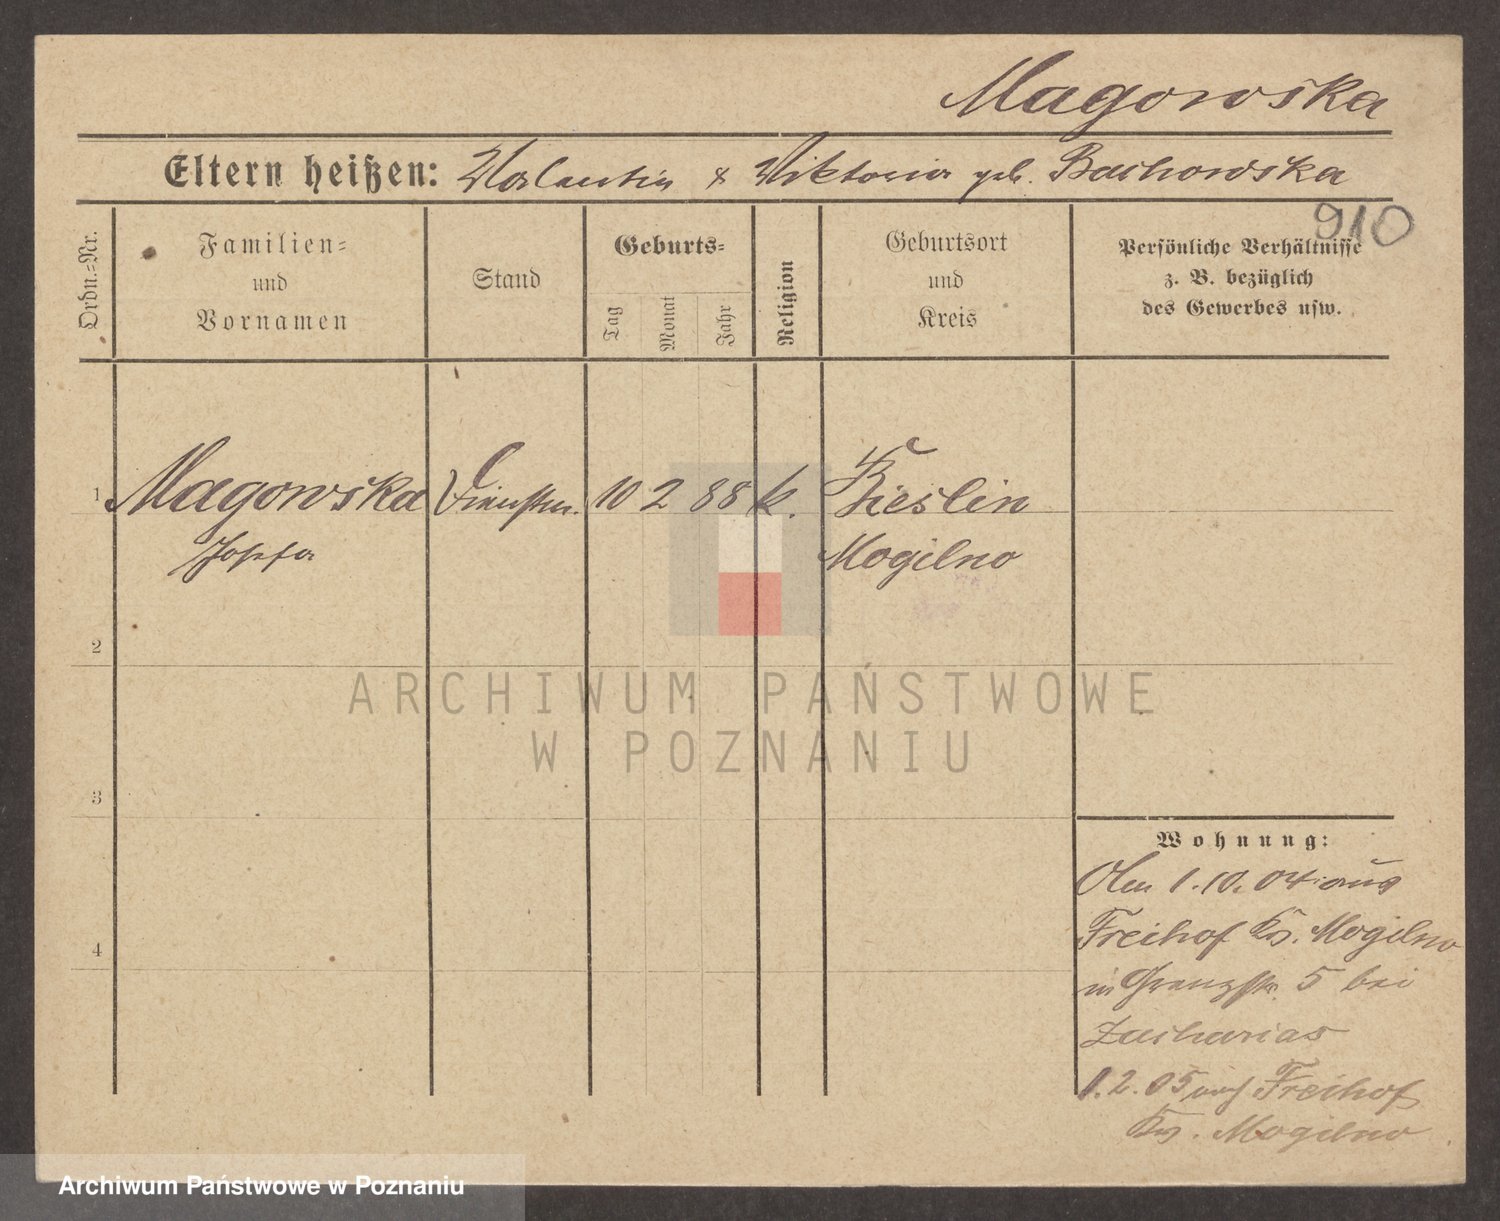 Magowska
Eltern heißen: Valentin & Viktoria geb. Bachowska
910
Ordn.=Nr.
Familien=
und
Vornamen
Stand
Geburts=
Tag
Monat
Jahr
Religion
Geburtsort
und
Kreis
Persönliche Verhältnisse
z. B. bezüglich
des Gewerbes usw.
1 Magowska Dienstm. 10 2 88 k. Bieslin
Josefa Mogilno
2
ARCHIWUM PAŃSTWOWE
W POZNANIU
3
Wohnung:
4
1.10.04 aus
Freihof Krs. Mogilno
in Grenzstr. 5 bei
Zacharias
1.2.05 nach Freihof
Krs. Mogilno
Archiwum Państwowe w Poznaniu